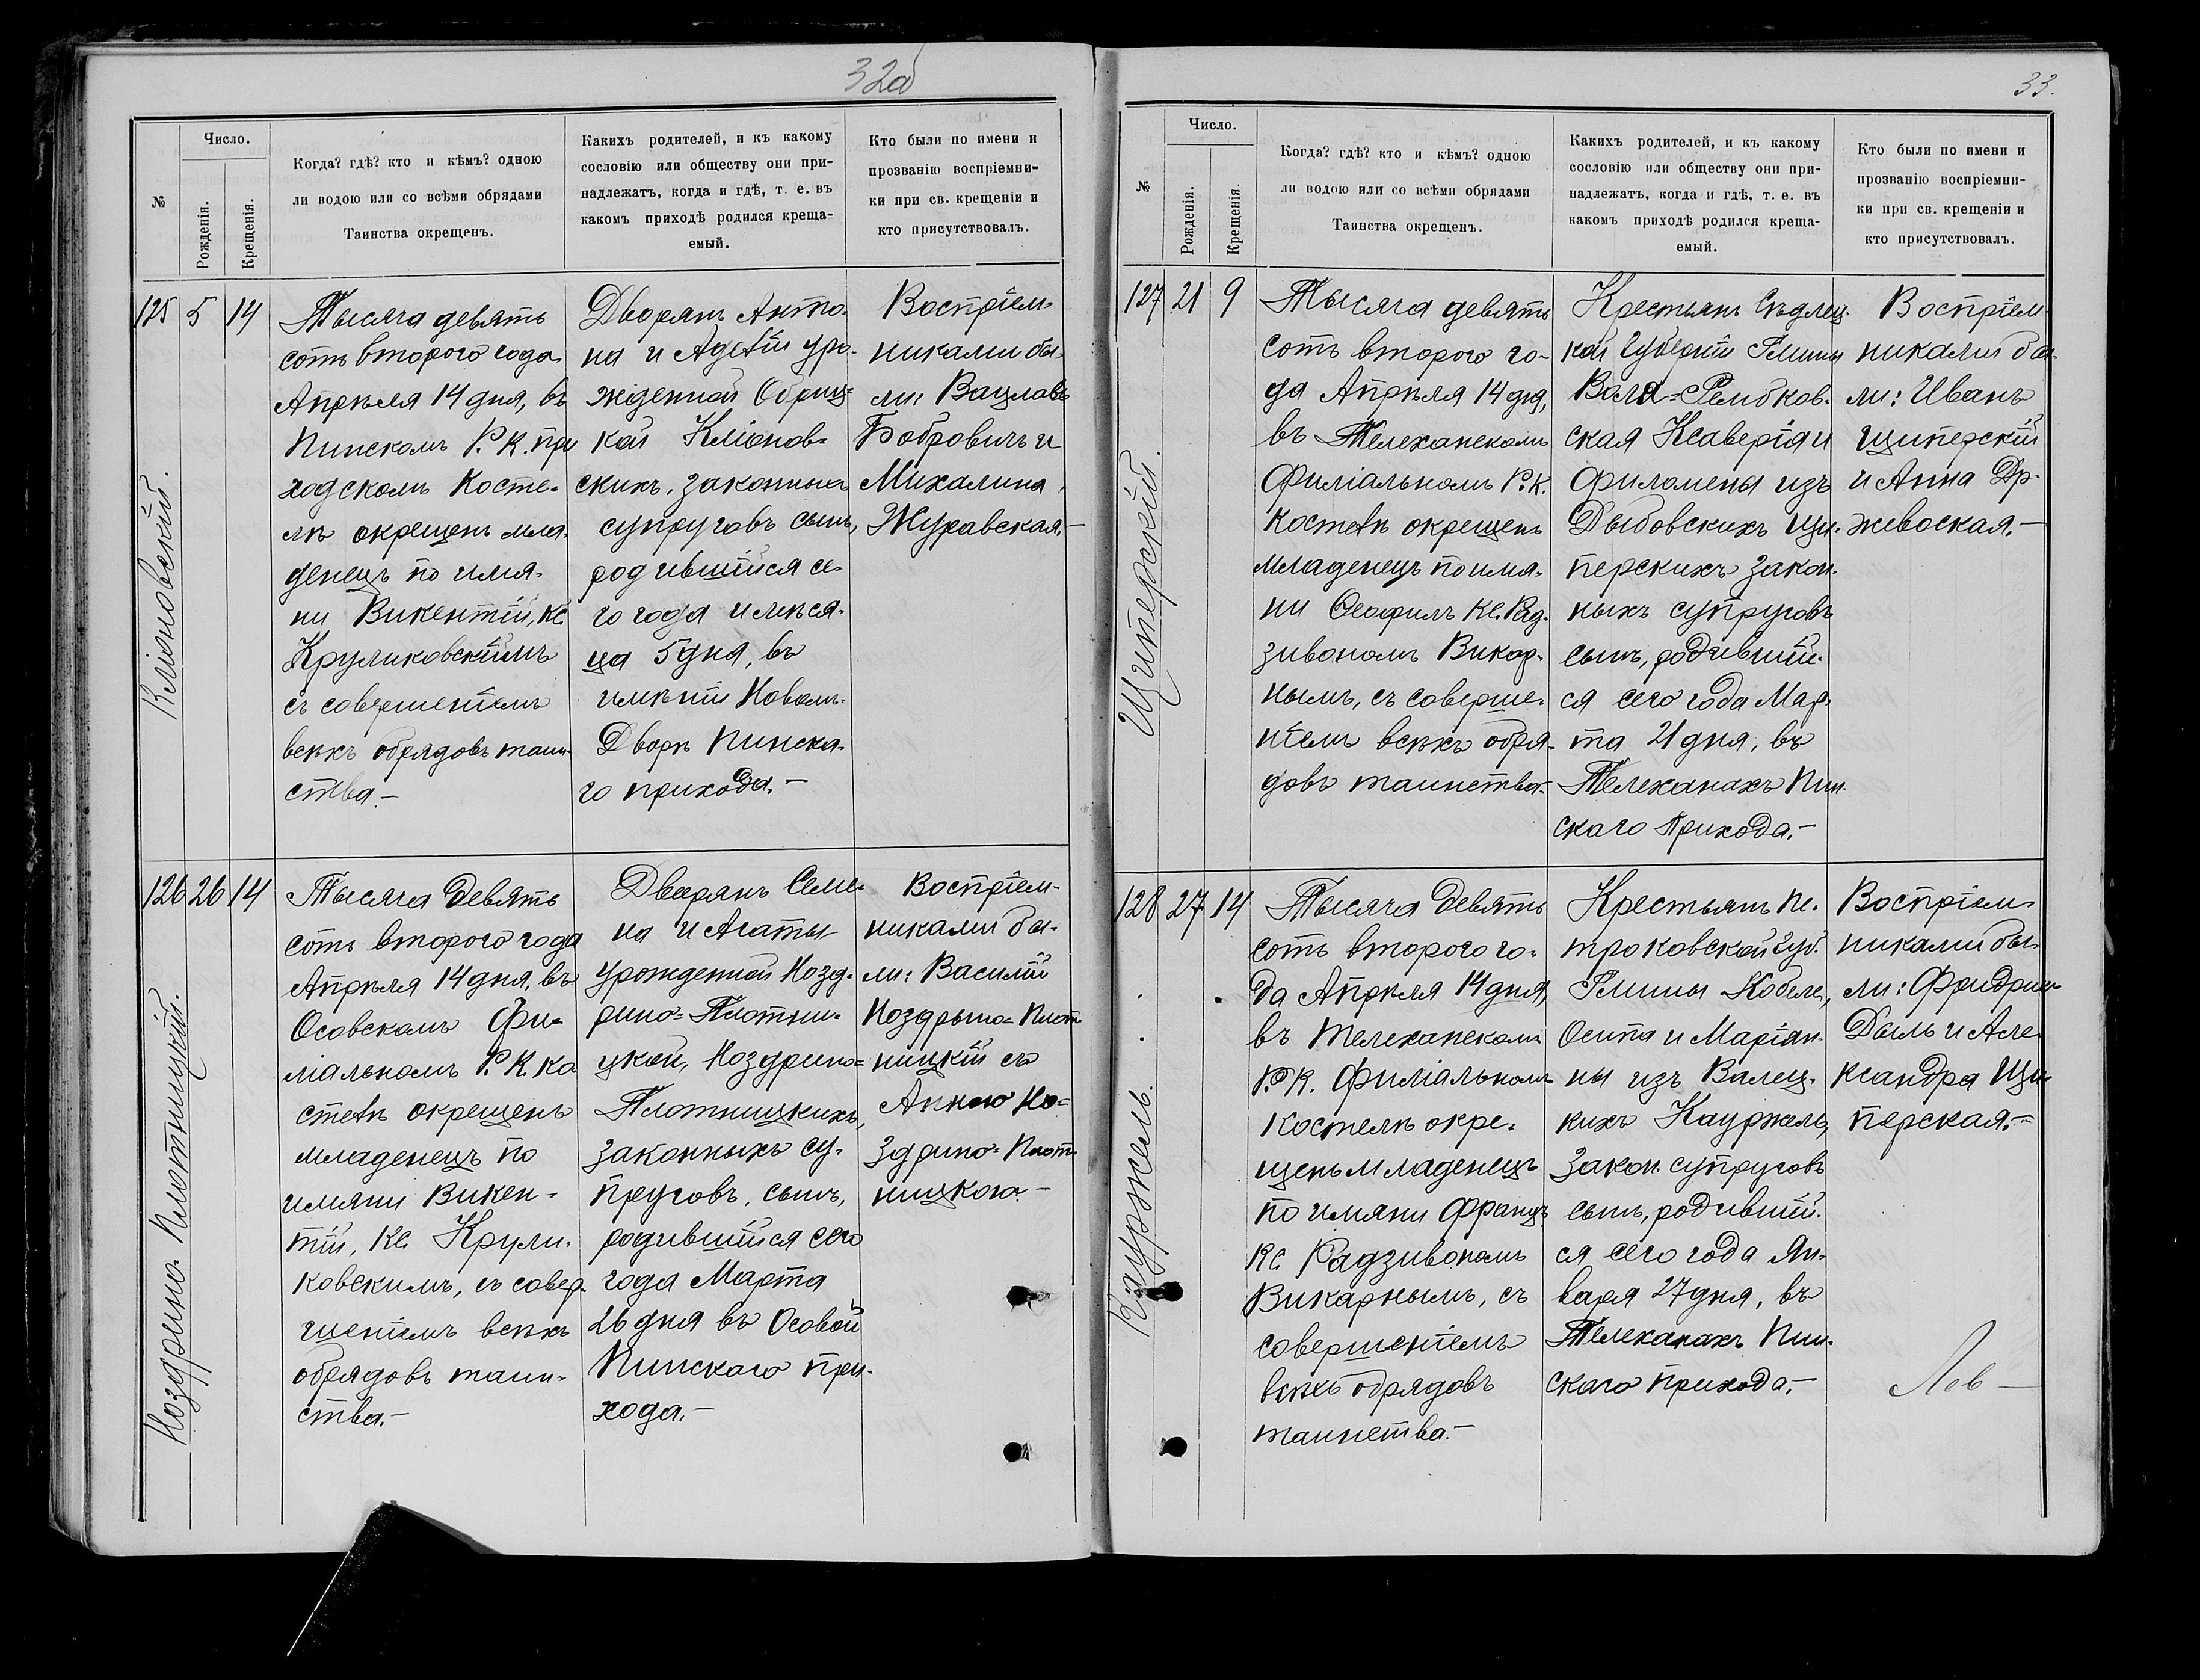 32об
№
Число.
Рожденія.
Крещенія.
Когда? гдѣ? кто и кѣмъ? одною
ли водою или со всѣми обрядами
Таинства окрещенъ.
Какихъ родителей, и къ какому
сословію или обществу они при-
надлежатъ, когда и гдѣ, т. е. въ
какомъ приходѣ родился креща-
емый.
Кто были по имени и
прозванію воспріемни-
ки при св. крещеніи и
кто присутствовалъ.
Кліоновскій.
125 5 14
Тысяча девять
сотъ второго года
Апрѣля 14 дня, въ
Пинскомъ Р. К. при
ходскомъ Косте-
лѣ окрещенъ мла-
денецъ по имя-
ни Викентій, Кс
Круликовскимъ
съ совершеніемъ
всѣхъ обрядовъ таин-
ства.—
Дворянъ Анто-
на и Аделіи уро-
жденной Обриц-
кой Кліонов-
скихъ, законныхъ
супруговъ сынъ,
родившійся се-
го года и мѣся-
ца 5 дня, въ
имѣніи Новомъ-
Дворѣ Пинска-
го прихода.—
Воспріем-
никами бы-
ли: Вацлавъ
Бобровичъ и
Михалина
Журавская.—
Ноздрино-Плотницкій.
126 26 14
Тысяча девять
сотъ второго года
Апрѣля 14 дня, въ
Осовскомъ Фи-
ліальномъ Р. К. ко
стелѣ окрещенъ
младенецъ по
имяни Викен-
тій, Кс. Крули-
ковскимъ, съ совер-
шеніемъ всѣхъ
обрядовъ таин-
ства.—
Дворянъ Семе-
на и Агаты
урожденной Нозд-
рино-Плотни-
цкой, Ноздрино-
Плотницкихъ,
законныхъ су-
пруговъ, сынъ,
родившійся сего
года Марта
26 дня въ Осовой
Пинскаго при-
хода.—
Воспріем-
никами бы-
ли: Василій
Ноздрыно-Плот
ницкій съ
Анною Но-
здрино-Плот-
ницкою.—
33.
№
Число.
Рожденія.
Крещенія.
Когда? гдѣ? кто и кѣмъ? одною
ли водою или со всѣми обрядами
Таинства окрещенъ.
Какихъ родителей, и къ какому
сословію или обществу они при-
надлежатъ, когда и гдѣ, т. е. въ
какомъ приходѣ родился креща-
емый.
Кто были по имени и
прозванію воспріемни-
ки при св. крещеніи и
кто присутствовалъ.
Щиперскій.
127 21 9
Тысяча девять
сотъ второго го-
да Апрѣля 14 дня,
въ Телеханскомъ
Филіальномъ Р. К.
костелѣ окрещенъ
младенецъ по имя-
ни Ѳеофилъ Кс. Рад-
зивономъ Викар-
нымъ, съ соверше-
ніемъ всѣхъ обря-
довъ таинства.
Крестьянъ Сѣдлец-
кой Губерніи Гмины
Воля-Рембков-
ская Ксаверія и
Филомены изъ
Дыбовскихъ Щи-
перскихъ закон-
ныхъ супруговъ
сынъ, родившій-
ся сего года Мар-
та 21 дня, въ
Телеханахъ Пин-
скаго Прихода.—
Воспріем-
никами бы-
ли: Иванъ
Щиперскій
и Анна Др-
жевоская.—
Кауржель.
128 27 14
Тысяча девять
сотъ второго го-
да Апрѣля 14 дня,
въ Телеханскомъ
Р. К. Филіальномъ
Костелѣ окре-
щенъ младенецъ
по имяни Францъ
Кс Радзивономъ
Викарнымъ, съ
совершеніемъ
всѣхъ обрядовъ
таинства.—
Крестьянъ Пе-
троковской Губ.
Гмины Кобеле,
Осипа и Маріан-
ны изъ Валец-
кихъ Кауржель,
закон. супруговъ
сынъ, родившій-
ся сего года Ян-
варя 27 дня, въ
Телеханахъ Пин-
скаго прихода.—
Воспріем-
никами бы-
ли: Фридрих
Дыль и Але-
ксандра Щи-
перская.—